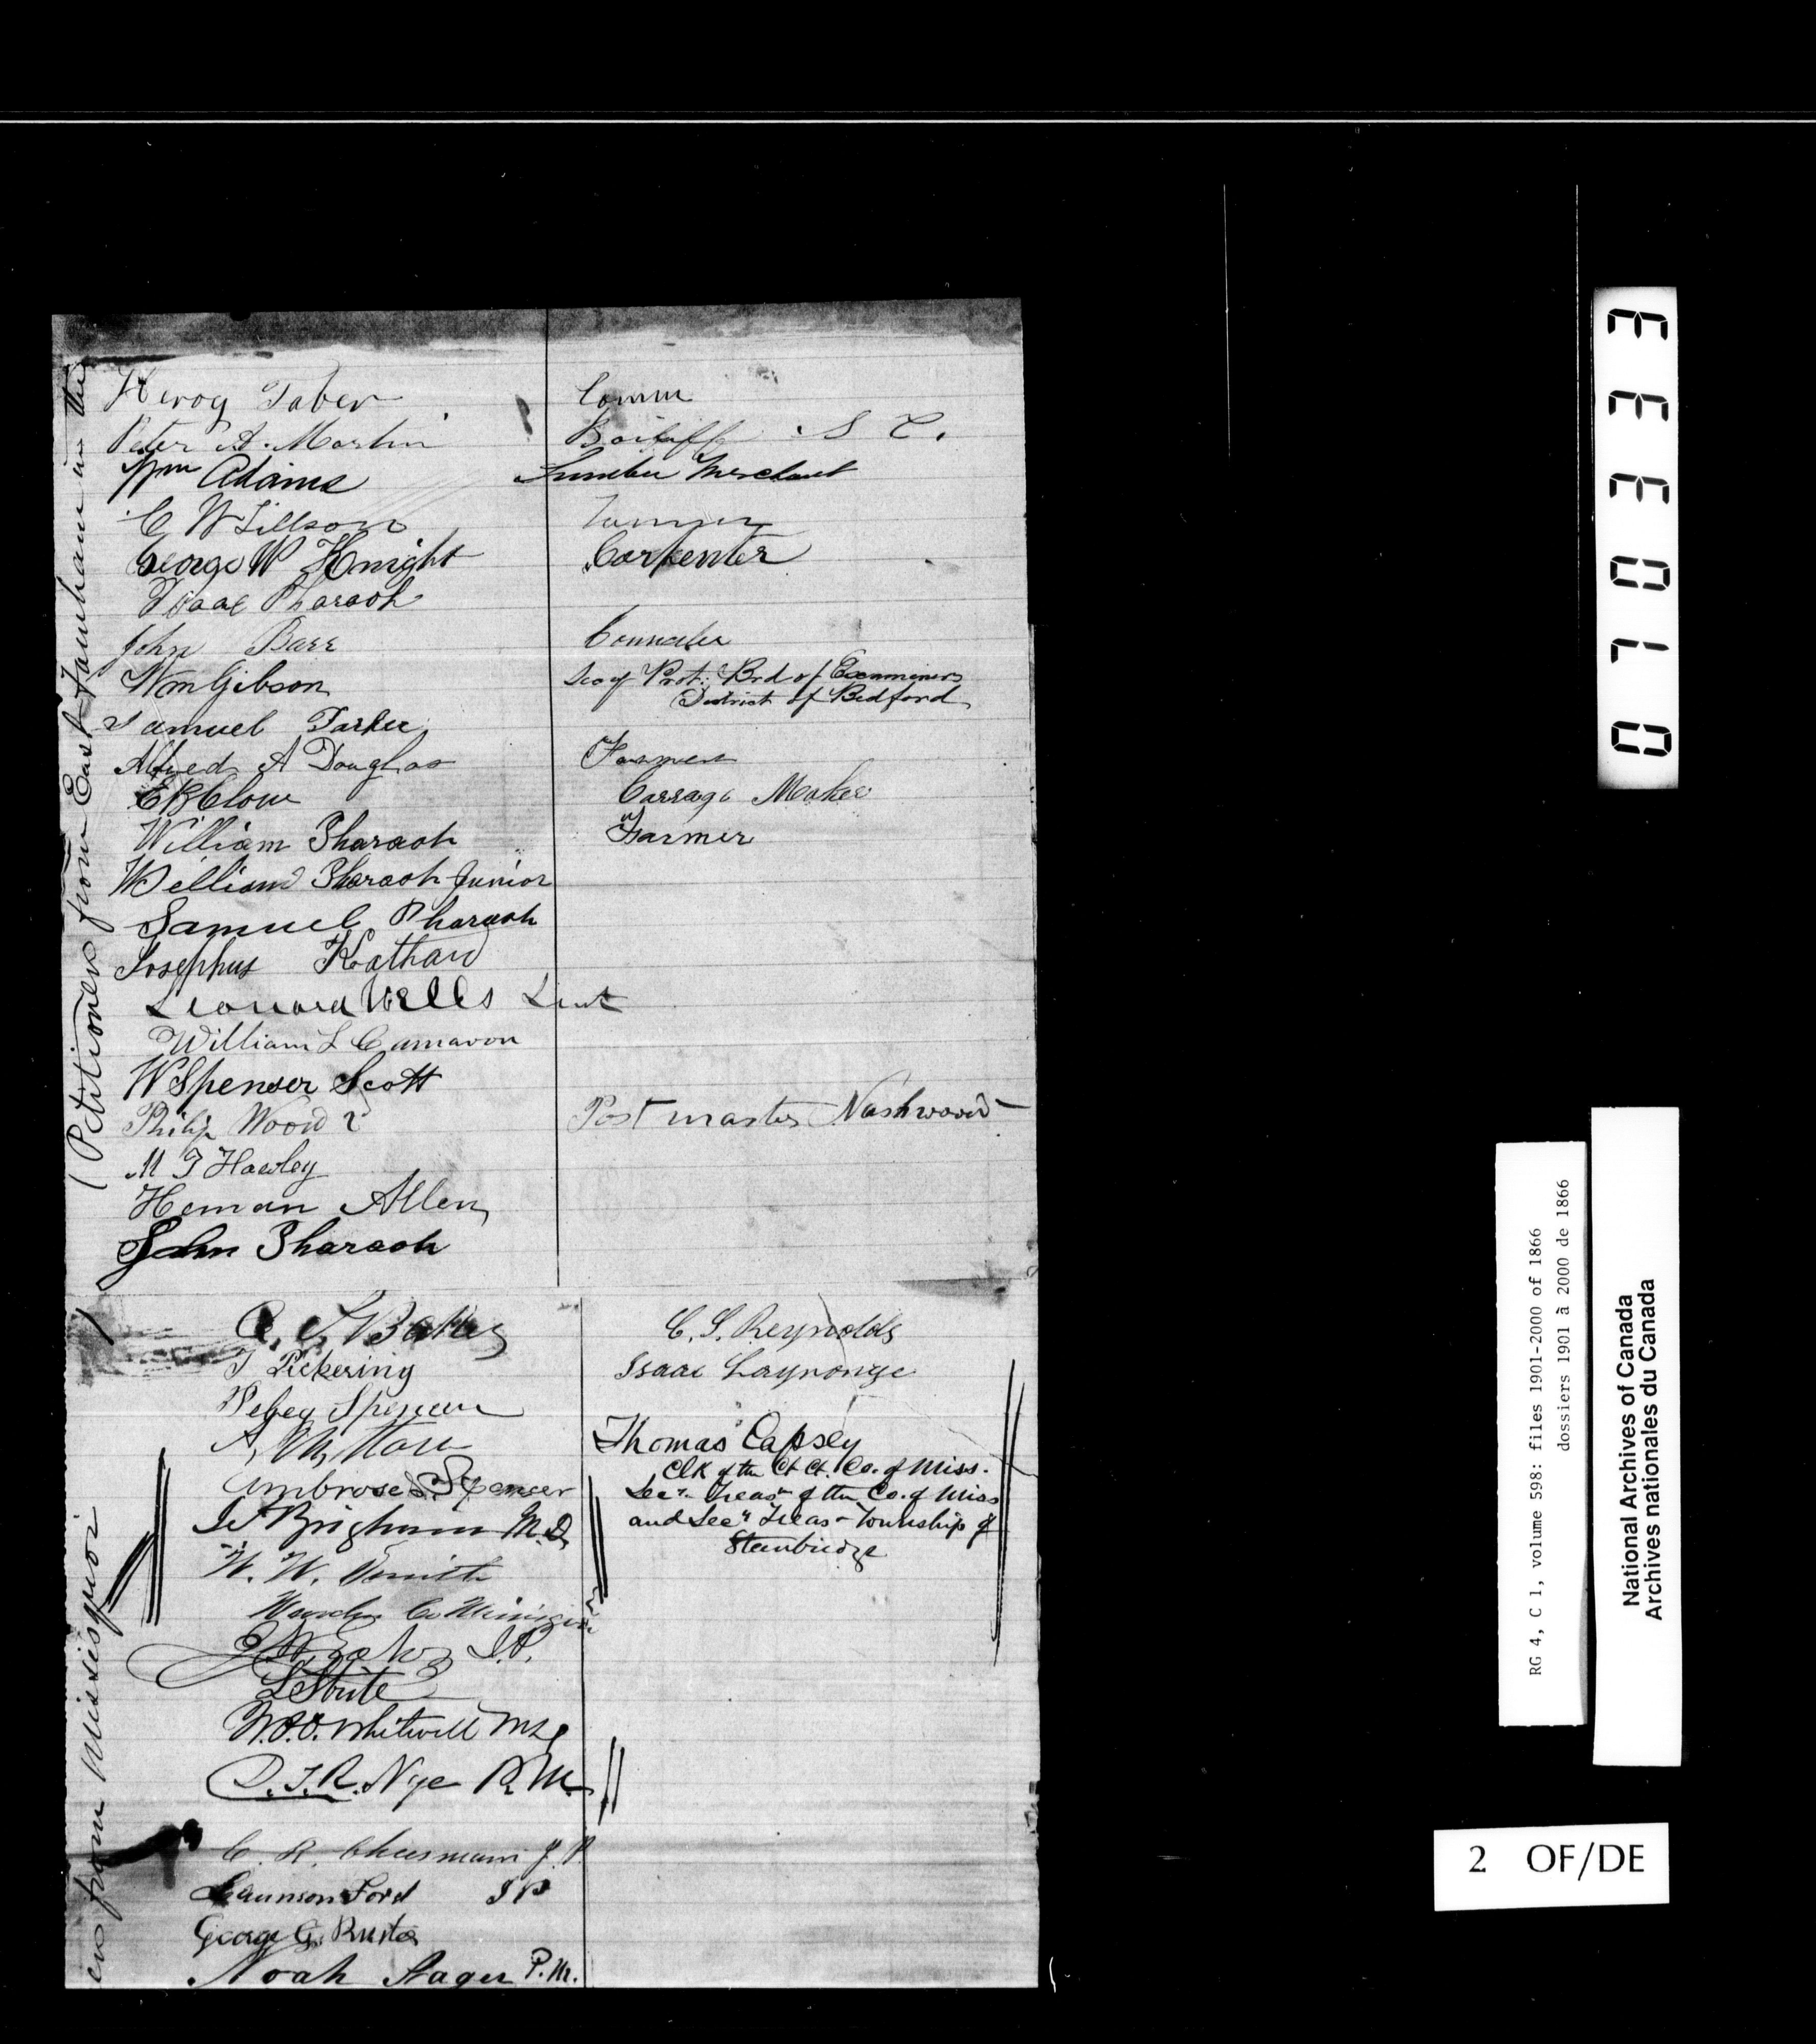 (Petitioners from East Farnham in the
Leroy Taber Comm
Peter A. Martin Bailiff S C.
Wm Adams Lumber Merchant
C W Lillson
George W Knight Carpenter
Isaac Pharaoh
John Barr
Wm Gibson Secy Prot: Brd of Examiners
District of Bedford
Samuel Parker
Alfred A Douglas
E R Clow Carrage Maker
William Pharaoh Farmer
William Pharaoh Junior
Samuel Pharaoh
Josephus Kathan
Leonard Wells Lieut
William L Camaron
W Spenser Scott
Philip Wood Post master Nashwood
M T Hawley
Heman Allen
John Pharaoh
from Missisquoi
C. S. Reynolds
T Pickering Isaac
Spencer
A, M,
Thomas Capsey
Clk of the Ct Ct. Co. of Miss.
Ambrose S. Spencer Secy Treas of the Co. of Miss
Brigham M.D. and Secy Treas Township of
Stanbridge
W. W. Smith
J.P.
W.O.O. Whitwell
D.T.R. Nye P.M.
C. R. Cheesman J. P.
Ford J P
George G.
Noah Sager P.M.
070333
RG 4, C 1, volume 598: files 1901-2000 of 1866
dossiers 1901 à 2000 de 1866
National Archives of Canada
Archives nationales du Canada
2 OF/DE